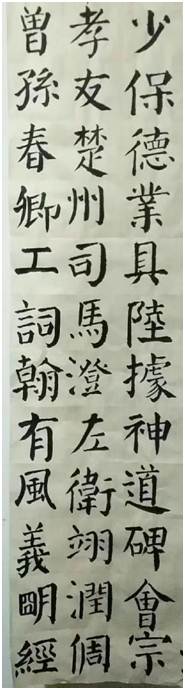 少保德業具陸據神道碑會宗
孝友楚州司馬澄左衛翊潤倜
曾孫春卿工詞翰有風義明經